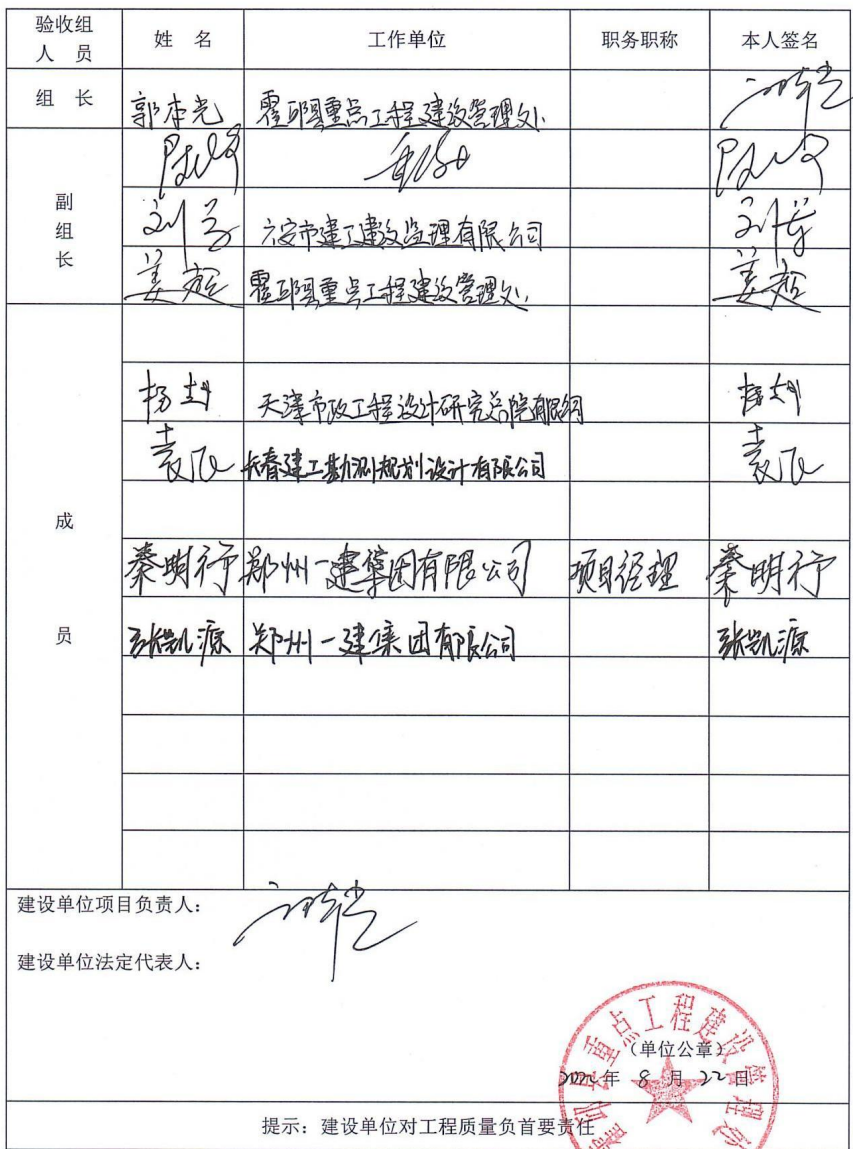 验收组人员 姓 名 工作单位 职务职称 本人签名
组 长 郭本光 霍邱县重点工程建设管理处
副组长
刘 六安市建工建设监理有限公司 刘
姜 霍邱县重点工程建设管理处 姜
成员
杨 天津市政工程设计研究总院有限公司 杨
袁 长春建工勘测规划设计有限公司 袁
秦明行 郑州一建集团有限公司 项目经理 秦明行
张凯源 郑州一建集团有限公司 张凯源
建设单位项目负责人：
建设单位法定代表人：
霍邱县重点工程建设管理处
（单位公章）
2022年 8 月 22 日
提示：建设单位对工程质量负首要责任